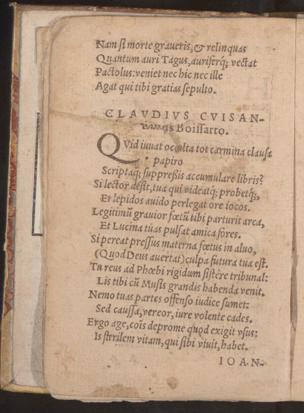 Nam si morte graueris, & relinquas
Quantum auri Tagus, auriferq́; vectat
Pactolus: veniet nec hic nec ille
Agat qui tibi gratias sepulto.
CLAVDIVS CVISAN-
Boissarto.
QVid iuuat occulta tot carmina clausa
papiro
Scriptaq; suppressis accumulare libris?
Si lector desit, tua qui videatq́; probetq́;,
Et lepidos auido perlegat ore iocos.
Legitimũ grauior fœtũ tibi parturit arca,
Et Lucina tuas pulsat amica fores.
Si pereat pressus materna fœtus in aluo,
(Quod Deus auertat) culpa futura tua est.
Tu reus ad Phœbi rigidum sistêre tribunal:
Lis tibi cũ Musis grandis habenda venit.
Nemo tuas partes offenso iudice sumet:
Sed caussa, vereor, iure volente cades.
Ergo age, eois deprome quod exigit vsus:
Is sterilem vitam, qui sibi viuit, habet.
IOAN-